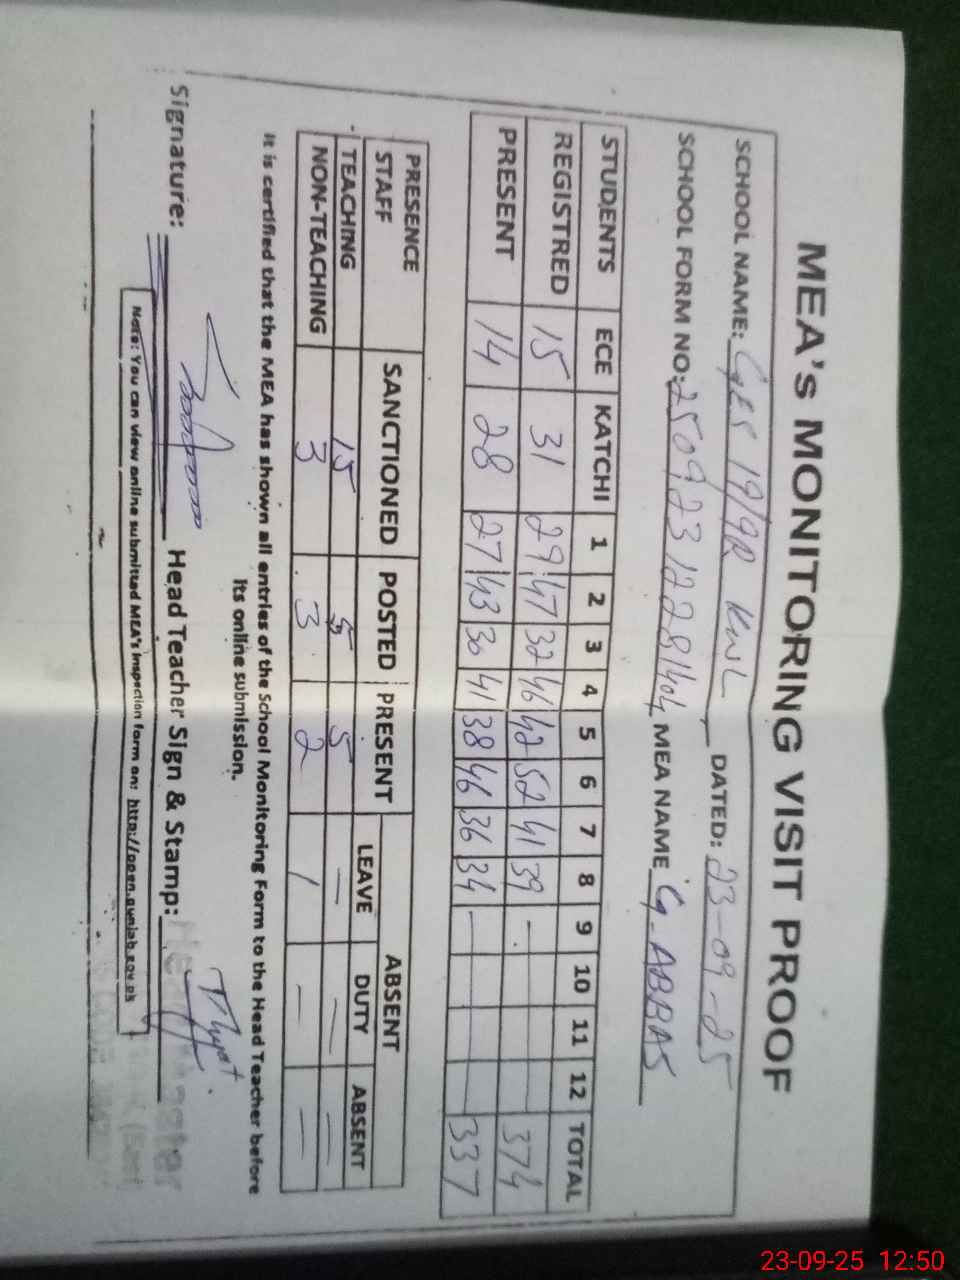 MEA's MONITORING VISIT PROOF
SCHOOL NAME: GES 19/9R KWL DATED: 23-09-25
SCHOOL FORM NO: 25092312281404 MEA NAME G. ABBAS
STUDENTS ECE KATCHI 1 2 3 4 5 6 7 8 9 10 11 12 TOTAL
REGISTRED 15 31 29 47 32 46 42 52 41 39 — 374
PRESENT 14 28 27 43 30 41 38 46 36 34 — 337
PRESENCE STAFF SANCTIONED POSTED PRESENT ABSENT
LEAVE DUTY ABSENT
TEACHING 15 5 5 — — —
NON-TEACHING 3 3 2 1 — —
It is certified that the MEA has shown all entries of the School Monitoring Form to the Head Teacher before
its online submission.
Signature: Head Teacher Sign & Stamp:
Note: You can view online submitted MEA's Inspection form on: http://open.punjab.gov.pk
23-09-25 12:50